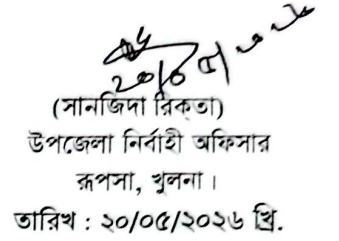 ২০/০৫/২০২৬
(সানজিদা রিকতা)
উপজেলা নির্বাহী অফিসার
রূপসা, খুলনা।
তারিখ : ২০/০৫/২০২৬ খ্রি.